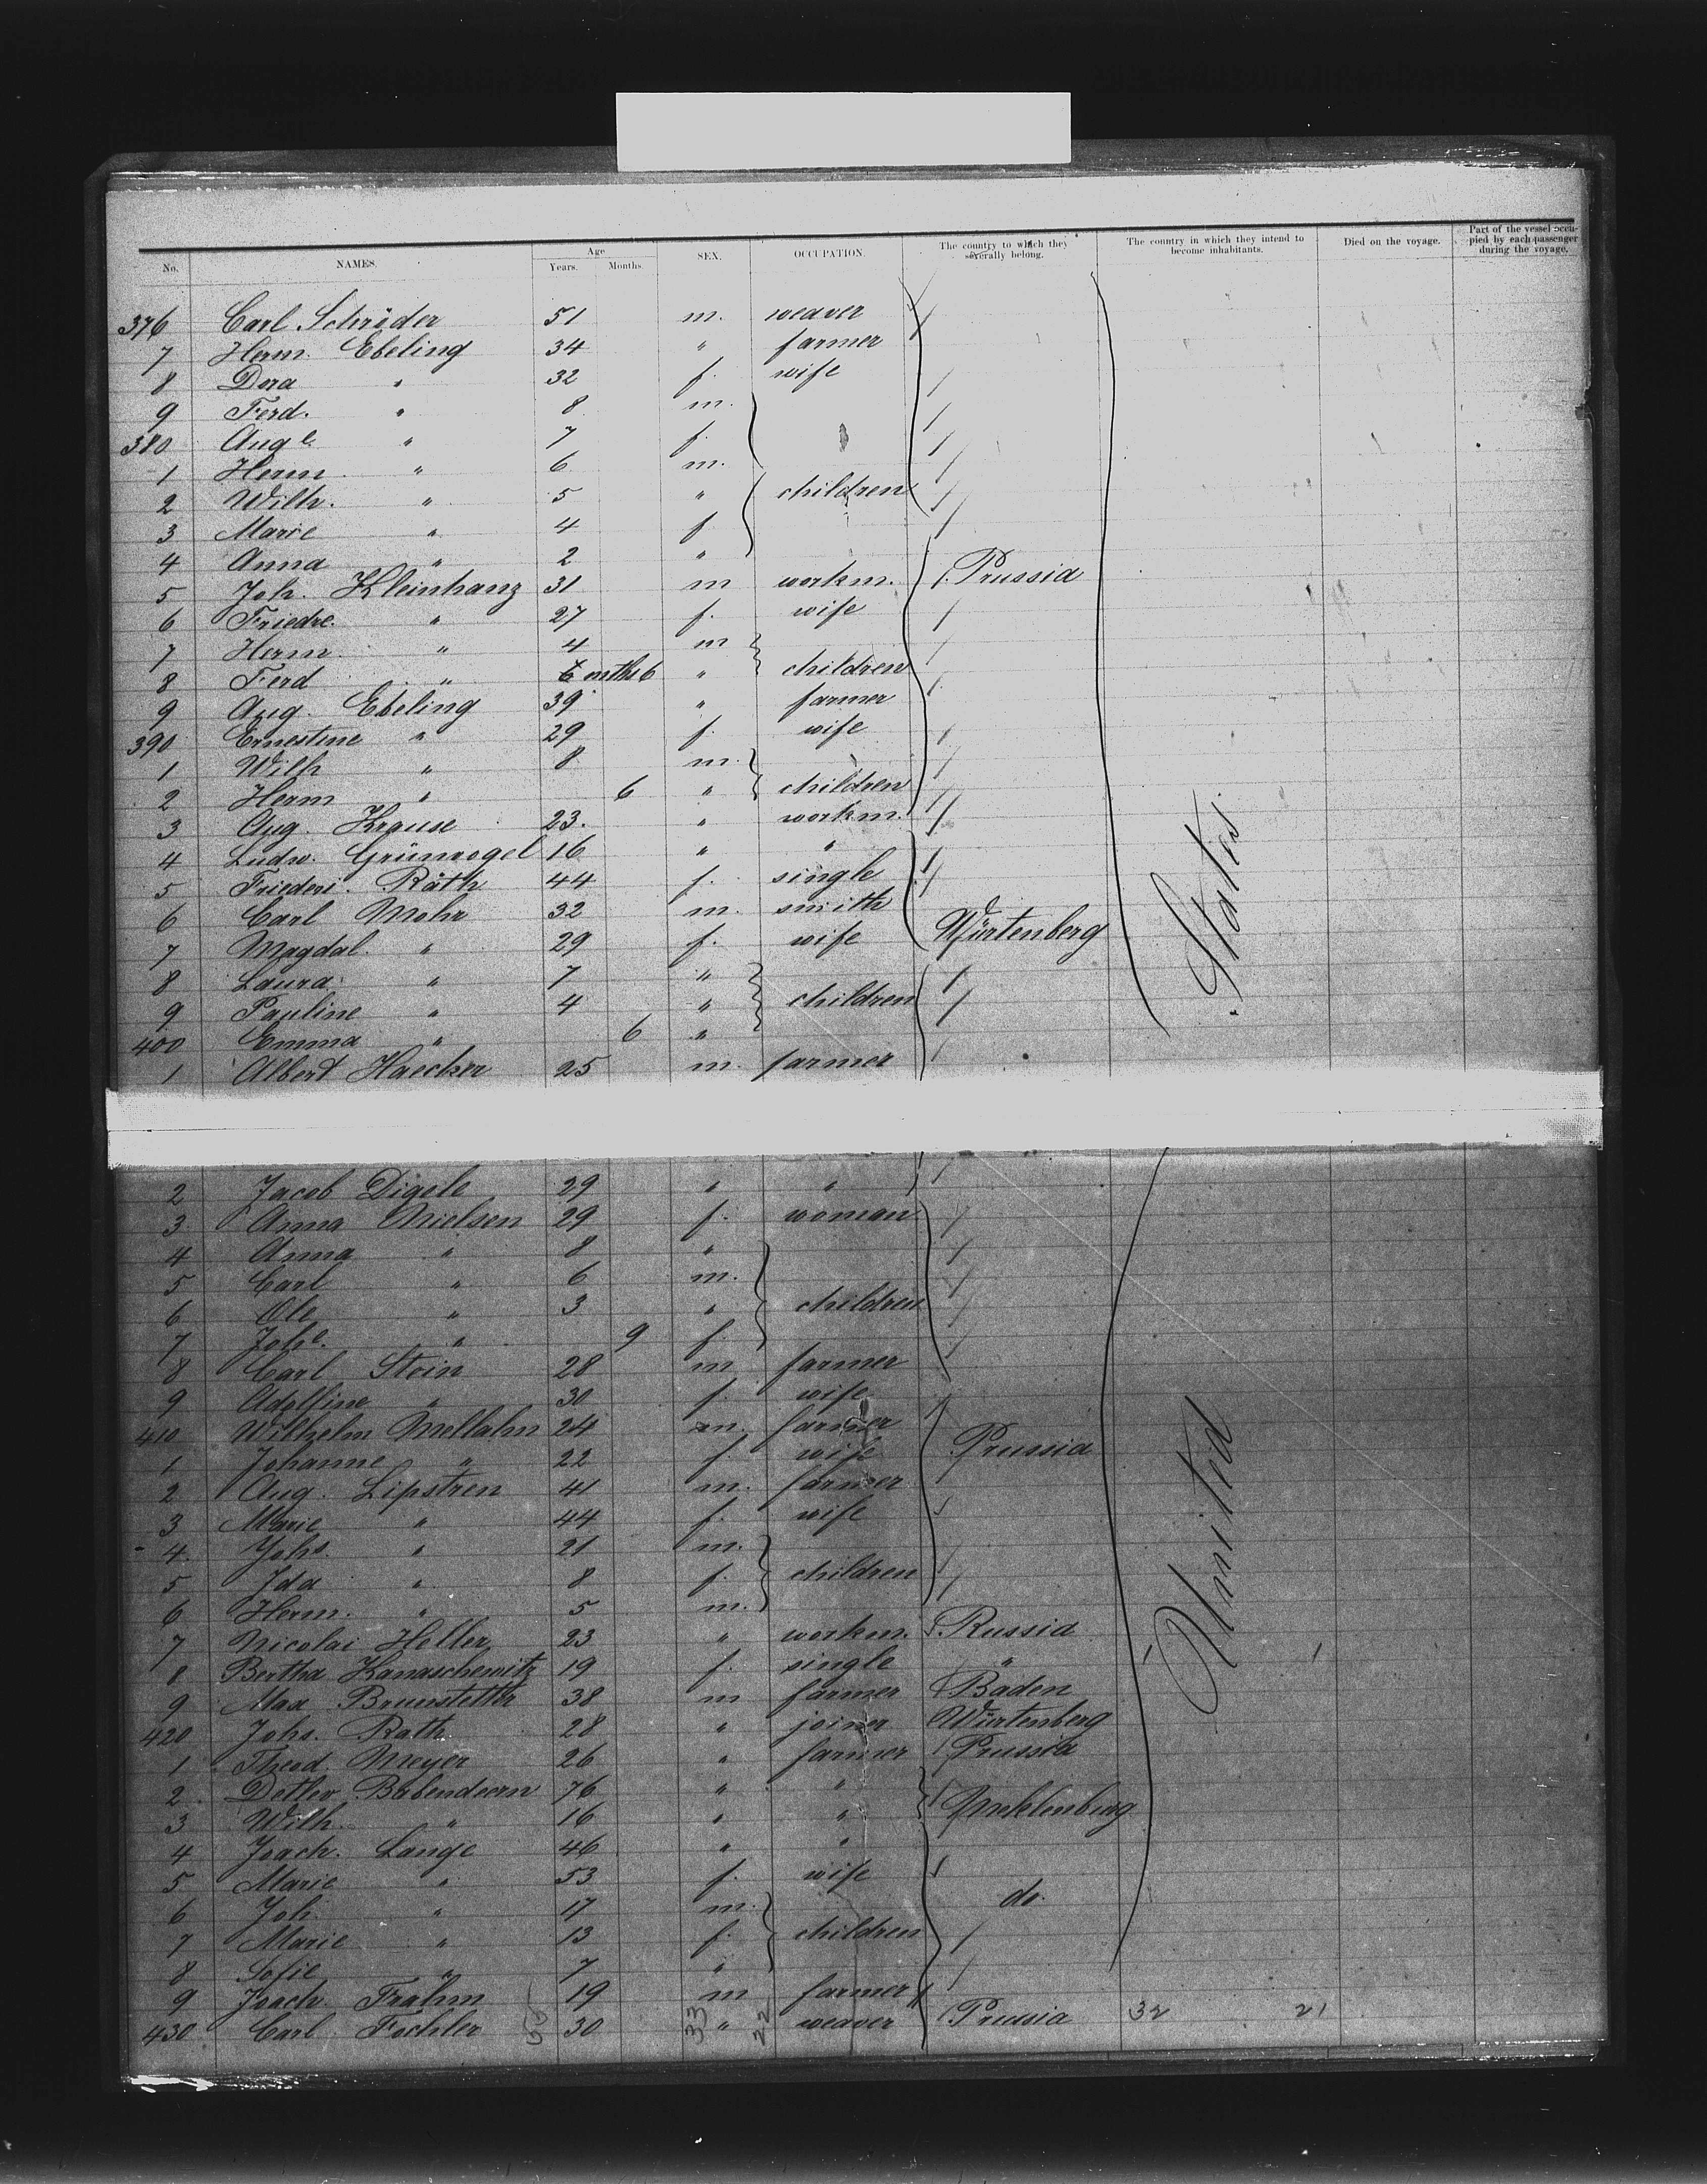 No. NAMES. Age Years. Months. SEX. OCCUPATION. The country to which they severally belong. The country in which they intend to become inhabitants. Died on the voyage. Part of the vessel occupied by each passenger during the voyage.
376 Carl Schröder 51 m. weaver
7 Herm. Ebeling 34 " farmer
8 Dora " 32 f. wife
9 Ferd. " 8 m.
380 Auge. " 7 f.
1 Herm. " 6 m.
2 Wilh. " 5 " children
3 Marie " 4 f
4 Anna " 2 "
5 Joh. Kleinhanz 31 m workm. Prussia
6 Friedre. " 27 f. wife
7 Herm. " 4 m
8 Ferd " 6 mths 6 " children
9 Aug. Ebeling 39 " farmer
390 Ernestine " 29 f. wife
1 Wilh " 8 m.
2 Herm " 6 " children
3 Aug. Krause 23. " workm.
4 Ludw. Grünvogel 16 " "
5 Friederi. Räth 44 f. single
6 Carl Mohr 32 m. smith
7 Magdal. " 29 f. wife Würtenberg
8 Laura " 7 "
9 Pauline " 4 " children
400 Emma " 6 "
1 Albert Haecker 25 m. farmer
States.
2 Jacob Digele 29 " "
3 Anna Nielsen 29 f. woman
4 Anna " 8 "
5 Carl " 6 m.
6 Ole " 3 " children
7 Johe. " 9 f.
8 Carl Stein 28 m farmer
9 Adolfine " 30 f. wife
410 Wilhelm Mellahn 24 m. farmer
1 Johanne " 22 f. wife Prussia
2 Aug. Lipstren 41 m. farmer
3 Marie " 44 f. wife
4. Johs. " 21 m.
5 Ida " 8 f. children
6 Herm. " 5 m.
7 Nicolai Heller 23 " workm. Russia
8 Bertha Kanaschewitz 19 f. single "
9 Max Brunstetter 38 m farmer Baden
420 Johs. Rath 28 " joiner Würtenberg
1 Theod. Meyer 26 " farmer Prussia
2. Detlev Babendeern 76 " "
3 Wilh. " 16 " " Meklenburg
4 Joach. Lange 46 " "
5 Marie " 53 f. wife
6 Joh. " 17 m. do.
7 Marie " 13 f. children
8 Sofie " 7 "
9 Joach. Frahm 19 m farmer
430 Carl Fochler 55 30 33 " 22 weaver Prussia 32 21
United